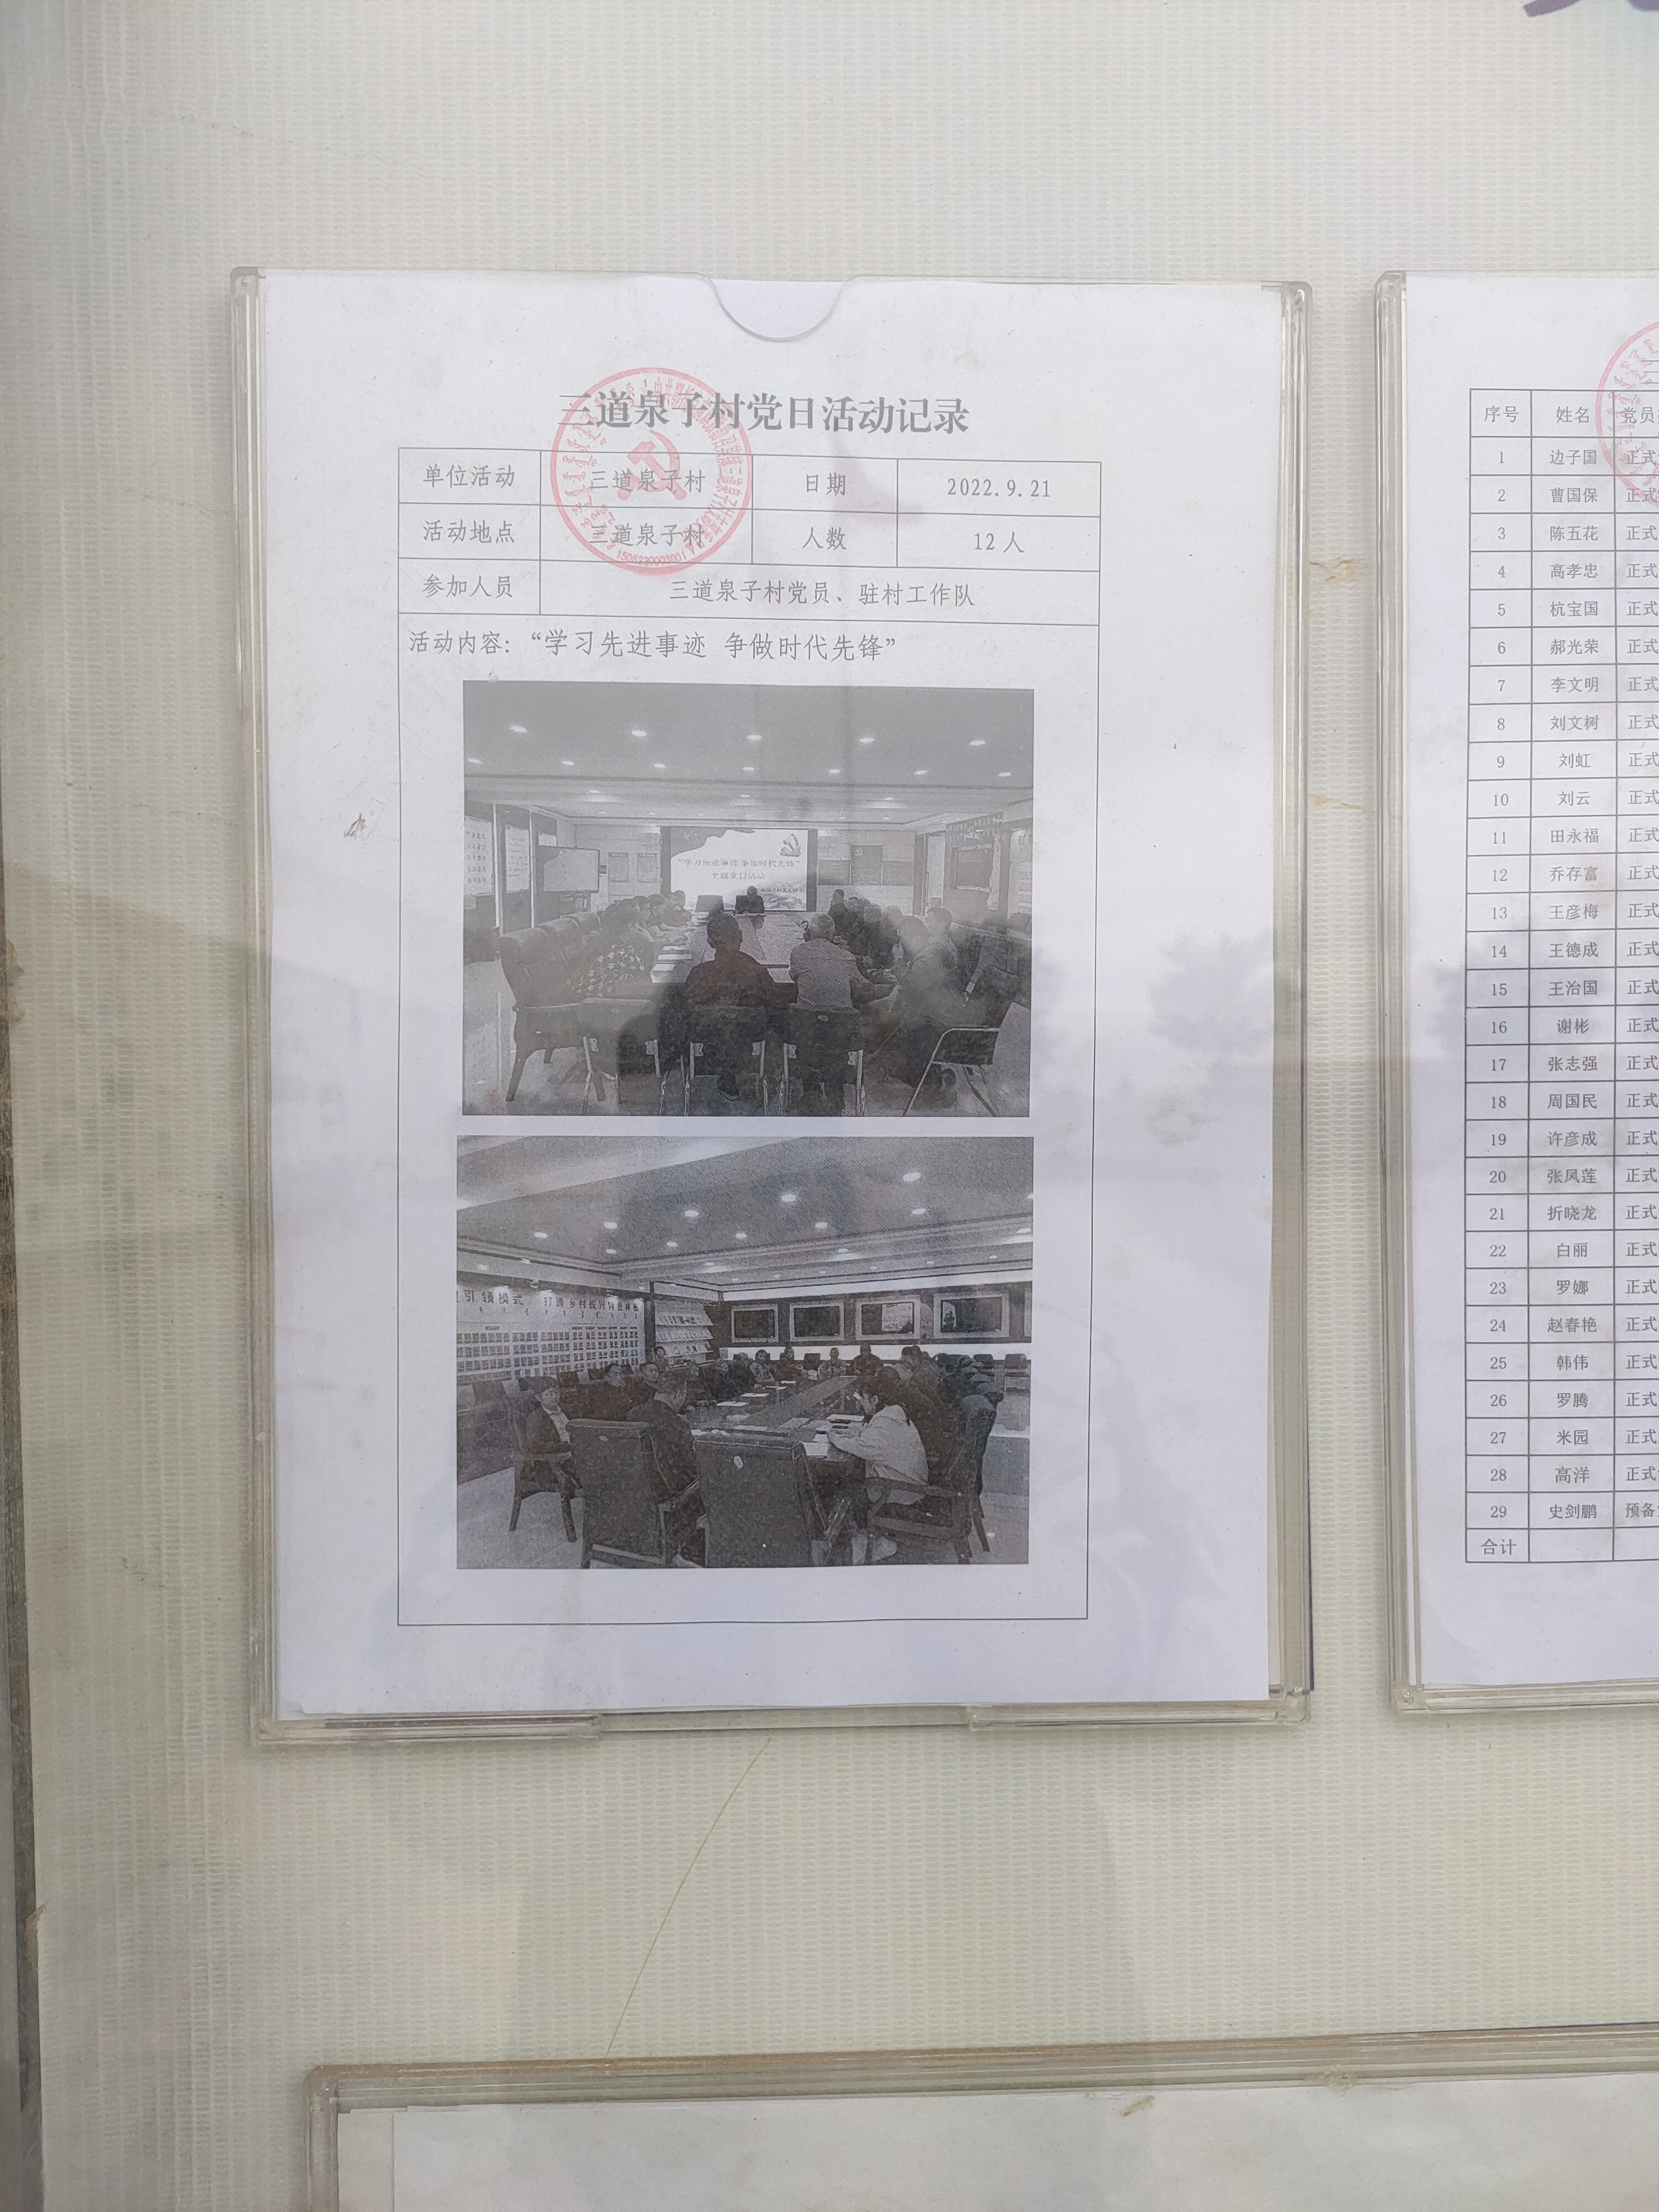 三道泉子村党日活动记录
单位活动 三道泉子村 日期 2022.9.21
活动地点 三道泉子村 人数 12人
参加人员 三道泉子村党员、驻村工作队
活动内容：“学习先进事迹 争做时代先锋”
“学习先进事迹 争做时代先锋”
主题党日活动
引领模式 打造乡村振兴特色样板
序号 姓名 党员
1 边子国 正式
2 曹国保 正式
3 陈五花 正式
4 高孝忠 正式
5 杭宝国 正式
6 郝光荣 正式
7 李文明 正式
8 刘文树 正式
9 刘虹 正式
10 刘云 正式
11 田永福 正式
12 乔存富 正式
13 王彦梅 正式
14 王德成 正式
15 王治国 正式
16 谢彬 正式
17 张志强 正式
18 周国民 正式
19 许彦成 正式
20 张凤莲 正式
21 折晓龙 正式
22 白丽 正式
23 罗娜 正式
24 赵春艳 正式
25 韩伟 正式
26 罗腾 正式
27 米园 正式
28 高洋 正式
29 史剑鹏 预备
合计